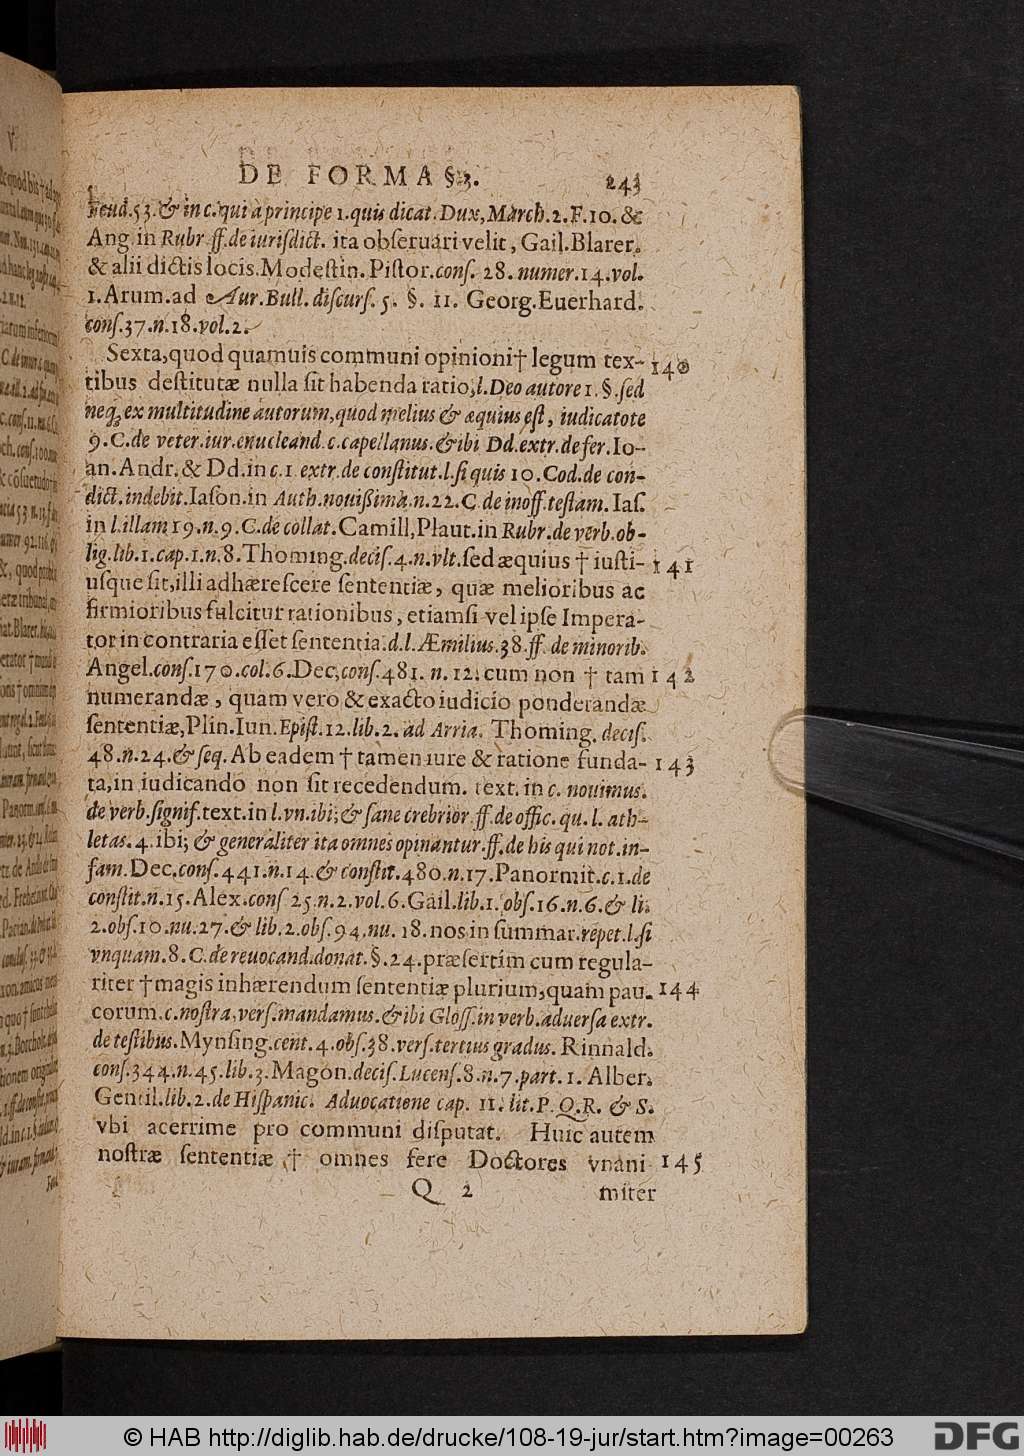 DE FORMA §3. 243
Feud.53.& in c.qui à principe 1.quis dicat.Dux,March.2.F.10.&
Ang.in Rubr.ff.de iurisdict. ita obseruari velit, Gail.Blarer.
& alii dictis locis.Modestin.Pistor.cons. 28. numer.14.vol.
1.Arum.ad Aur.Bull. discurs. 5. §. 11. Georg.Euerhard.
cons.37.n.18.vol.2.
Sexta,quod quamuis communi opinioni† legum tex- 140
tibus destitutæ nulla sit habenda ratio,l.Deo autore 1.§.sed
neq; ex multitudine autorum,quod melius & æquius est, iudicatote
9.C.de veter.iur.enucleand.c.capellanus.& ibi Dd.extr.de fer.Io-
an.Andr.& Dd.in c.1 extr.de constitut.l.si quis 10.Cod.de con-
dict.indebit.Iason.in Auth.nouißima.n.22.C de inoff.testam.Ias.
in l.illam 19.n.9.C.de collat.Camill,Plaut.in Rubr.de verb.ob-
lig.lib.1.cap.1.n.8.Thoming.decis.4.n.vlt.sed æquius † iusti- 141
usque sit,illi adhærescere sententiæ, quæ melioribus ac
firmioribus fulcitur rationibus, etiamsi vel ipse Impera-
tor in contraria esset sententia.d.l.Æmilius.38.ff.de minorib.
Angel.cons.170.col.6.Dec,cons.481. n.12.cum non † tam 142
numerandæ, quam vero & exacto iudicio ponderandæ
sententiæ,Plin.Iun.Epist.12.lib.2. ad Arria. Thoming. decis.
48.n.24.& seq.Ab eadem † tamen iure & ratione funda- 143
ta,in iudicando non sit recedendum. text. in c. nouimus.
de verb.signif.text.in l.vn.ibi;& sane crebrior ff.de offic. qu. l. ath-
letas.4.ibi; & generaliter ita omnes opinantur.ff.de his qui not.in-
fam.Dec.cons.441.n.14.& constit.480.n.17.Panormit.c.1.de
constit.n.15.Alex.cons 25.n.2.vol.6.Gail.lib.1.obs.16.n.6.& li.
2.obs.10.nu.27.& lib.2.obs.94.nu. 18.nos in summar.repet.l.si
vnquam.8.C.de reuocand.donat.§.24.præsertim cum regula-
riter †magis inhærendum sententiæ plurium,quam pau. 144
corum.c.nostra,vers.mandamus.& ibi Gloss.in verb.aduersa extr.
de testibus.Mynsing.cent.4.obs.38.vers.tertius gradus. Rinnald.
cons.344.n.45.lib.3.Magon.decis.Lucens.8.n.7.part.1. Alber.
Gentil.lib.2.de Hispanic. Aduocatione cap. 11.lit.P.Q.R. & S.
vbi acerrime pro communi disputat. Huic autem
nostræ sententiæ † omnes fere Doctores vnani 145
Q 2 miter
© HAB http://diglib.hab.de/drucke/108-19-jur/start.htm?image=00263
DFG